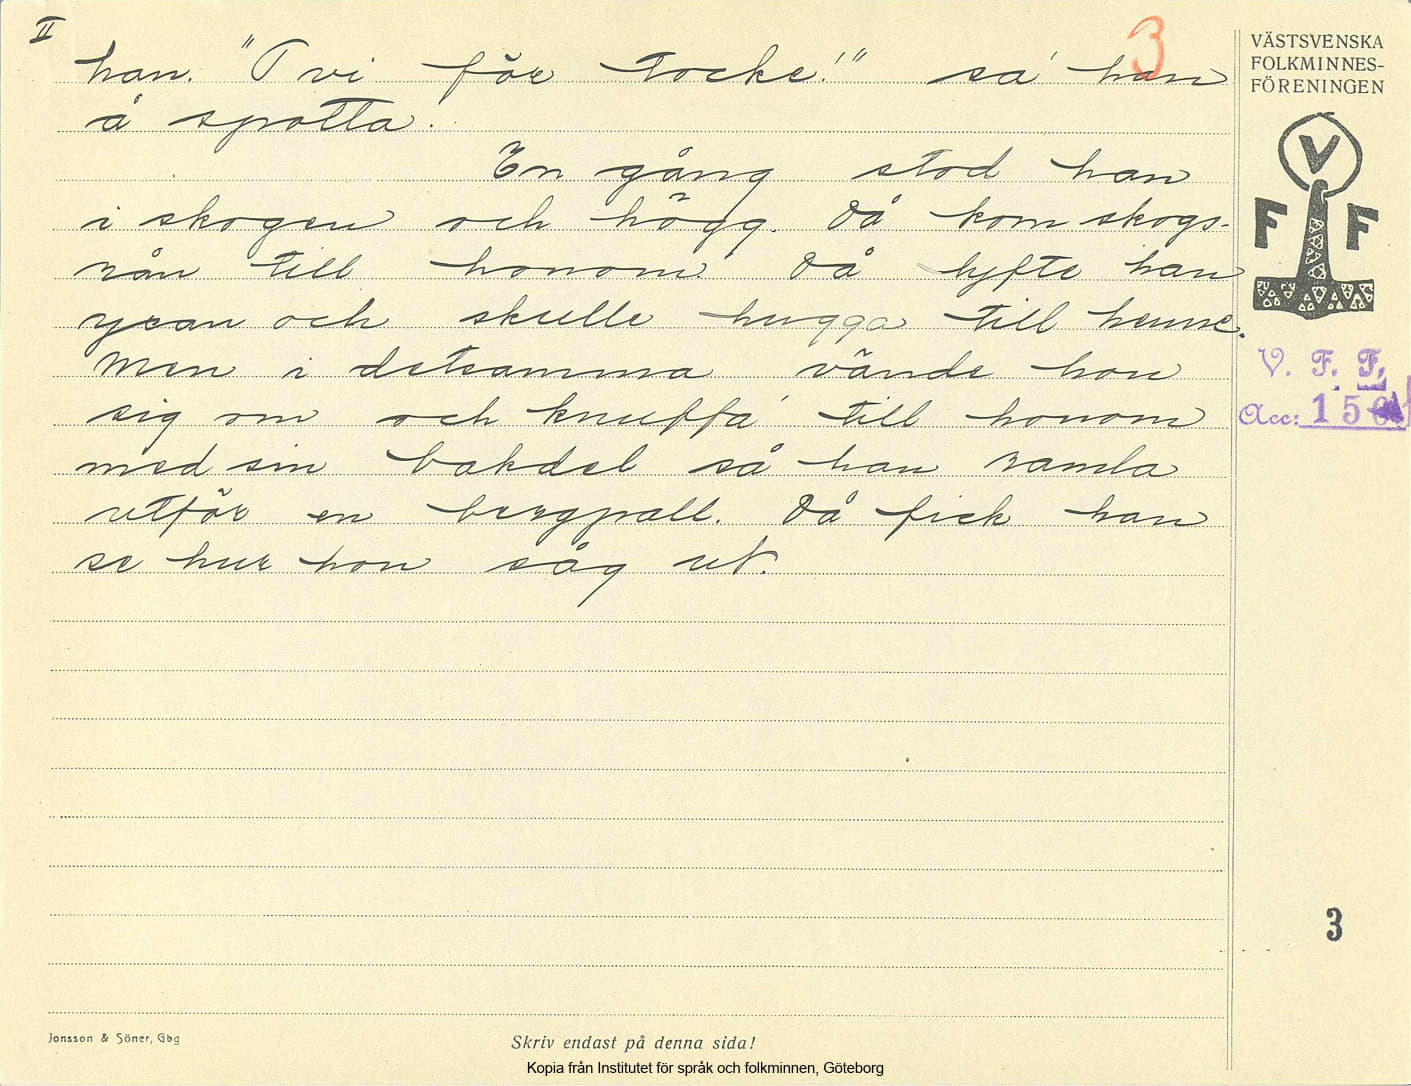 II
3
han. "Tvi för tocke!" sa' han
å spotta.
En gång stod han
i skogen och högg. Då kom skogs-
rån till honom. Då lyfte han
yxan och skulle hugga till henne.
Men i detsamma vände hon
sig om och knuffa' till honom
med sin bakdel så han ramla
utför en bergpall. Då fick han
se hur hon såg ut.
VÄSTSVENSKA
FOLKMINNES-
FÖRENINGEN
V
F F
V. F. F.
Acc: 15
3
Jonsson & Söner, Gbg
Skriv endast på denna sida!
Kopia från Institutet för språk och folkminnen, Göteborg